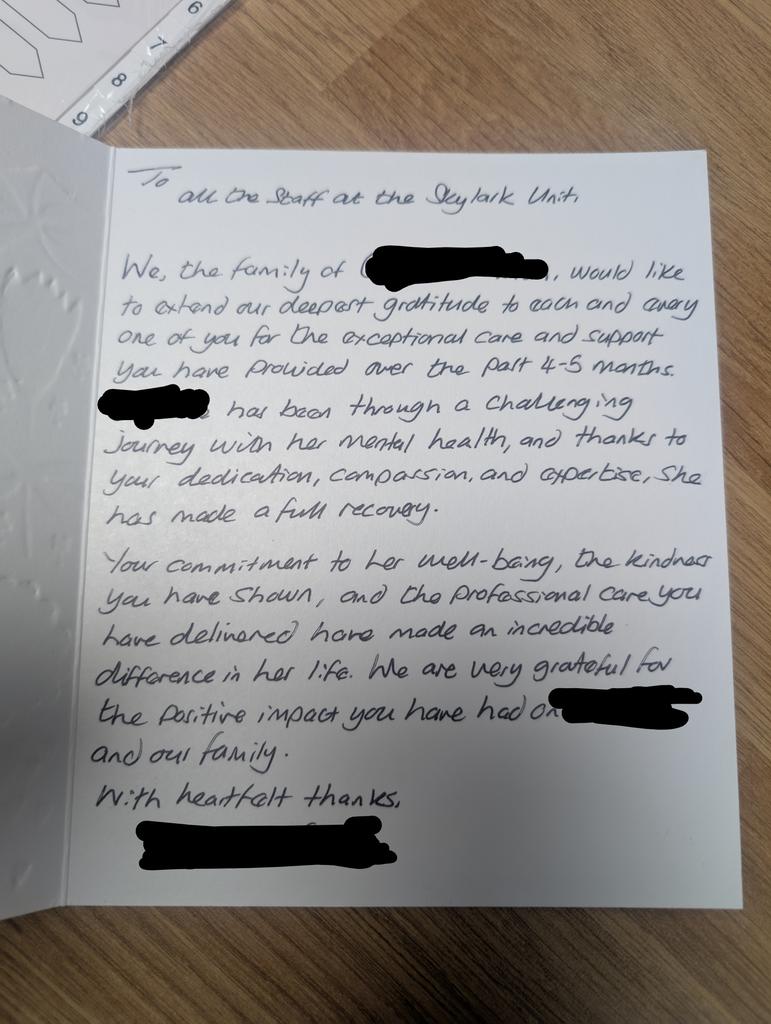 6
7
8
9
To
all the Staff at the Skylark Unit,
We, the family of , would like
to extend our deepest gratitude to each and every
one of you for the exceptional care and support
you have provided over the past 4-5 months.
has been through a challenging
journey with her mental health, and thanks to
your dedication, compassion, and expertise, she
has made a full recovery.
Your commitment to her well-being, the kindness
you have shown, and the professional care you
have delivered have made an incredible
difference in her life. We are very grateful for
the positive impact you have had on
and our family.
With heartfelt thanks,